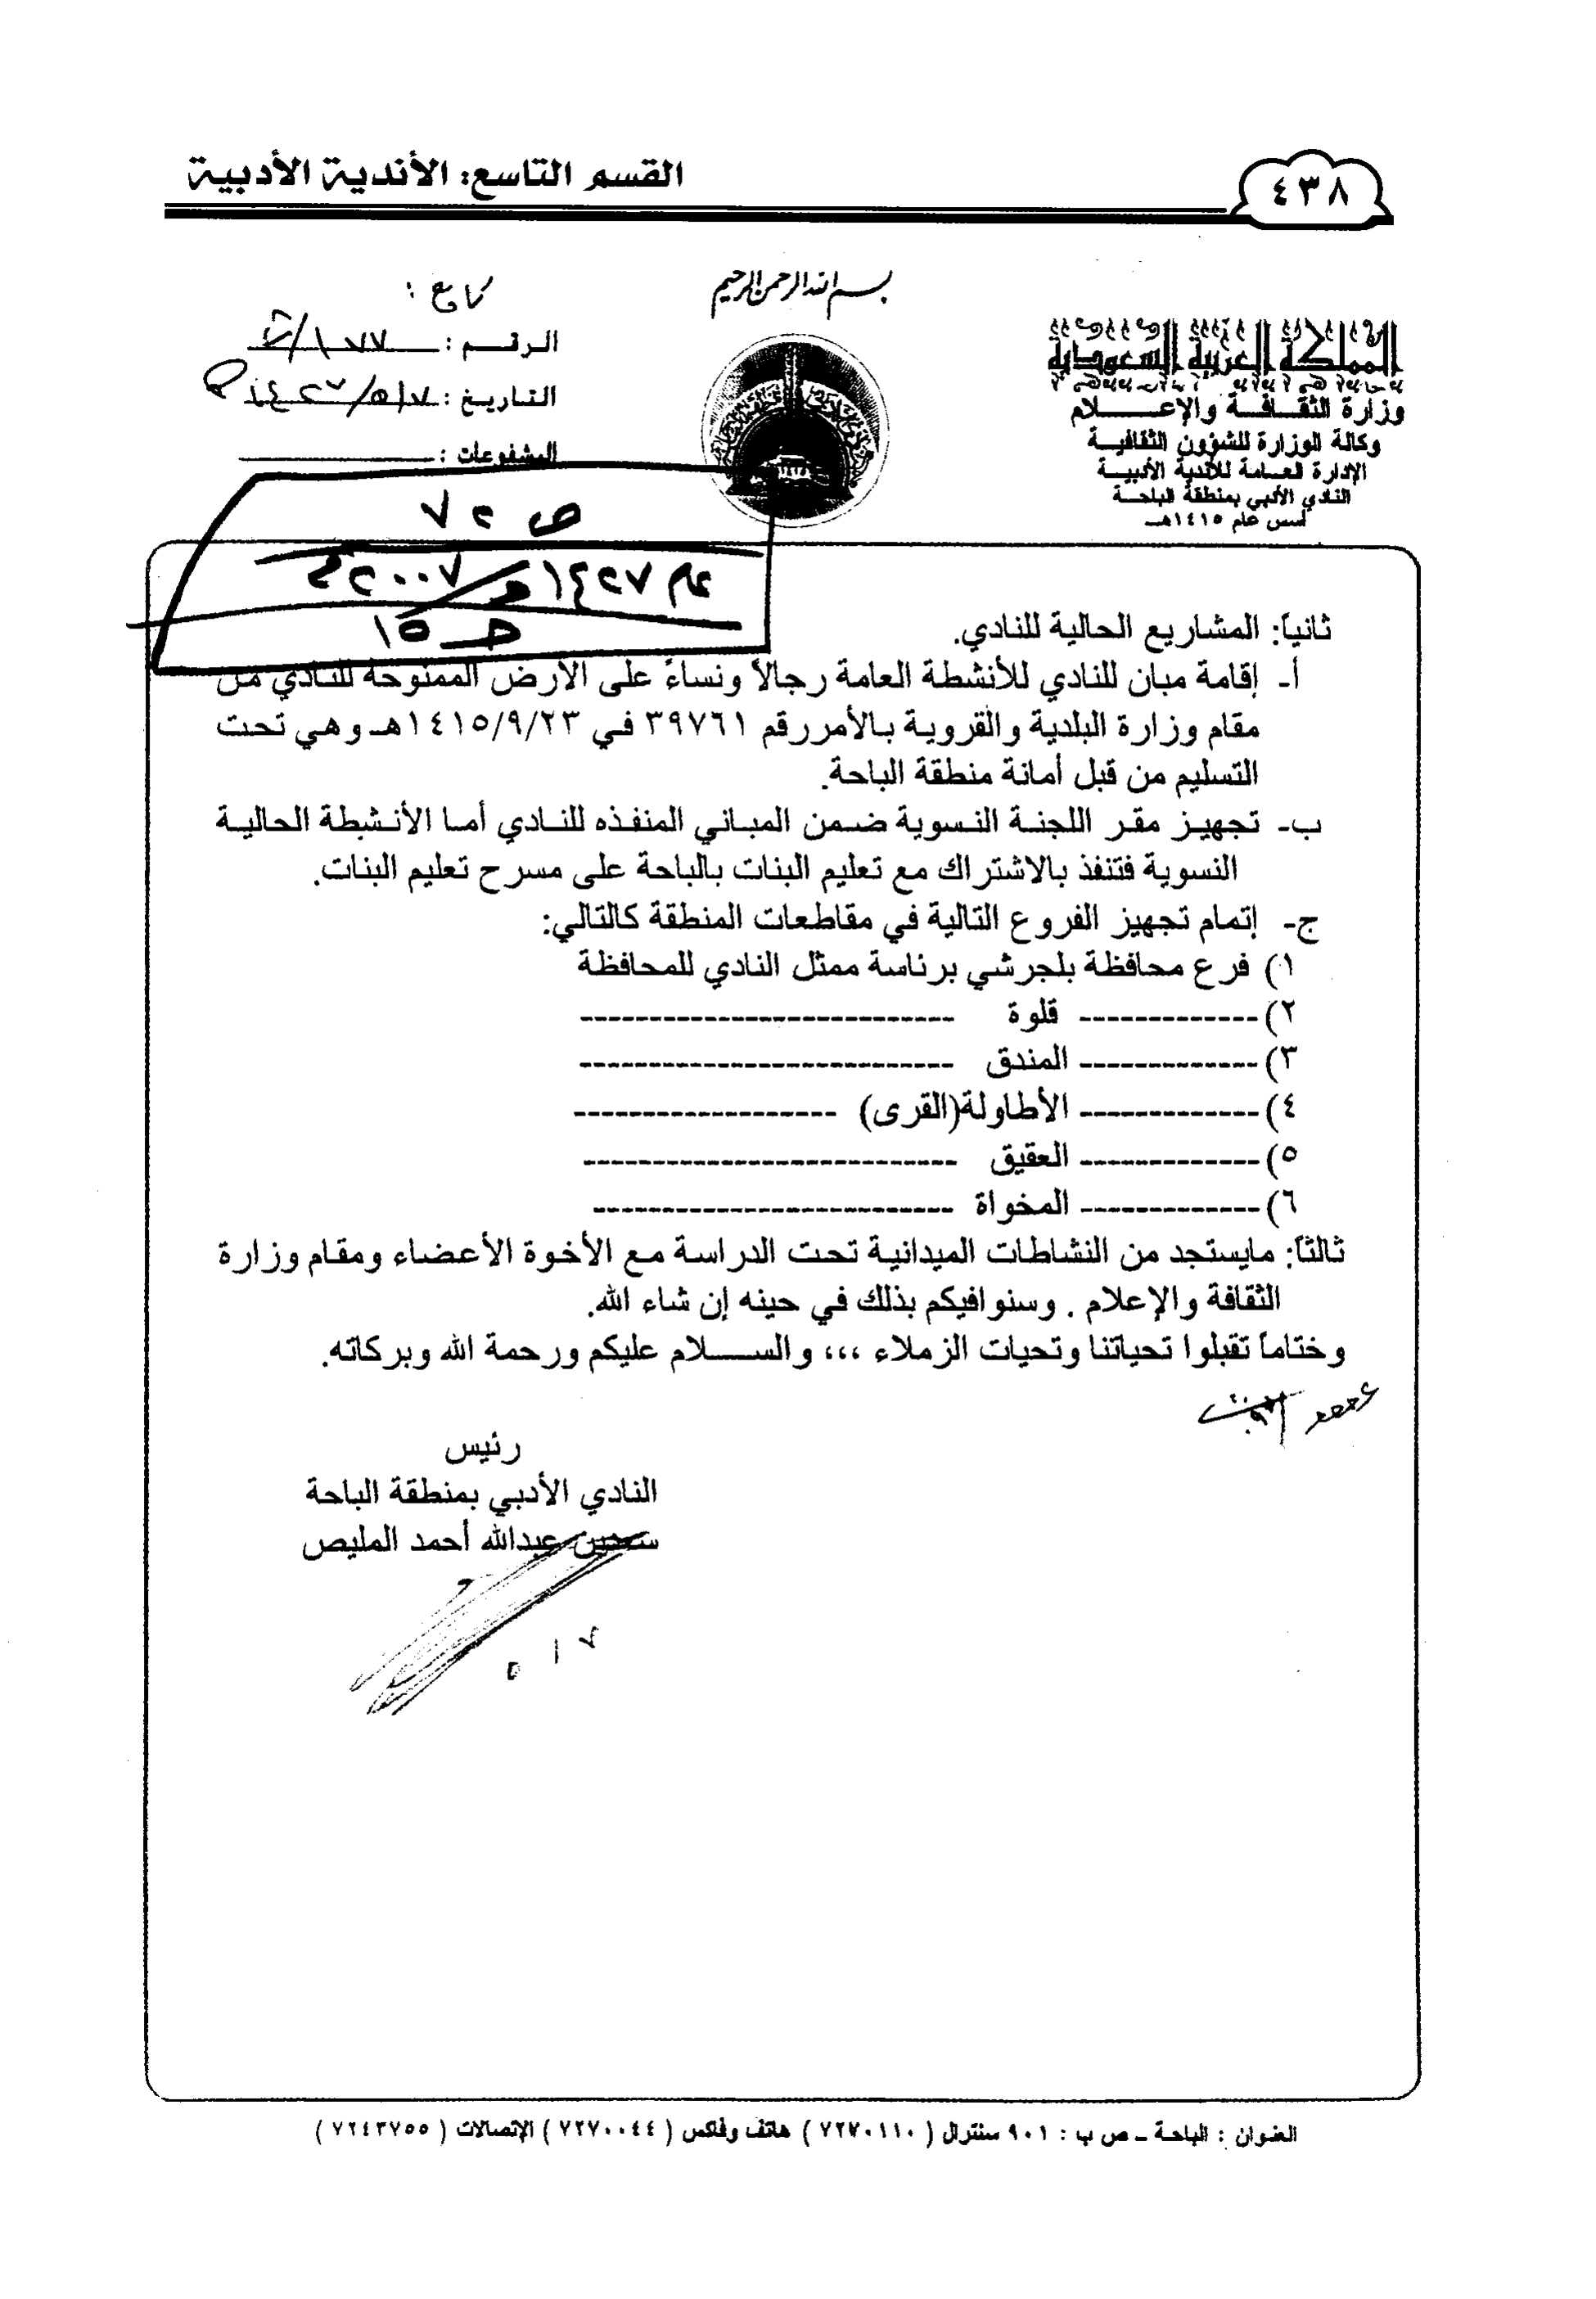 ٤٣٨
القسم التاسع: الأندية الأدبية
بسم الله الرحمن الرحيم
المملكة العربية السعودية
وزارة الثقافة والإعلام
وكالة الوزارة للشؤون الثقافية
الإدارة العامة للأندية الأدبية
النادي الأدبي بمنطقة الباحة
أسس عام ١٤١٥هـ
تابع :
الرقم : ١٧٧/
التاريخ : ٥/٧/١٤٢٧هـ
المشفوعات :
ص ٢٧
عام ١٤٢٧هـ/٢٠٠٧م
حـ ١٥
ثانياً: المشاريع الحالية للنادي.
أ- إقامة مبان للنادي للأنشطة العامة رجالاً ونساءً على الأرض الممنوحة للنادي من
مقام وزارة البلدية والقروية بالأمر رقم ٣٩٧٦١ في ١٤١٥/٩/٢٣هـ وهي تحت
التسليم من قبل أمانة منطقة الباحة.
ب- تجهيز مقر اللجنة النسوية ضمن المباني المنفذه للنادي أما الأنشطة الحالية
النسوية فتنفذ بالاشتراك مع تعليم البنات بالباحة على مسرح تعليم البنات.
ج- إتمام تجهيز الفروع التالية في مقاطعات المنطقة كالتالي:
١) فرع محافظة بلجرشي برئاسة ممثل النادي للمحافظة
٢) ------------- قلوة ---------------------------
٣) ------------- المندق ---------------------------
٤) ------------- الأطاولة(القرى) -------------------
٥) ------------- العقيق ---------------------------
٦) ------------- المخواة --------------------------
ثالثاً: مايستجد من النشاطات الميدانية تحت الدراسة مع الأخوة الأعضاء ومقام وزارة
الثقافة والإعلام . وسنوافيكم بذلك في حينه إن شاء الله.
وختاماً تقبلوا تحياتنا وتحيات الزملاء ،،، والســـلام عليكم ورحمة الله وبركاته.
رئيس
النادي الأدبي بمنطقة الباحة
سعدبن عبدالله أحمد المليص
٥/٧
العنوان : الباحة - ص ب : ٩٠١ سنترال ( ٧٢٧٠١١٠ ) هاتف وفاكس ( ٧٢٧٠٠٤٤ ) الإتصالات ( ٧٢٤٣٧٥٥ )